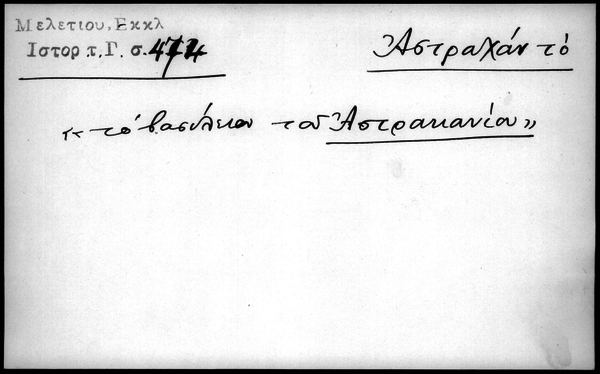 Μελετίου, Εκκλ
Ιστορ τ, Γ. σ. 474
Ἀστραχάν τὸ
«τὸ βασίλειον τοῦ Ἀστρακανίου»